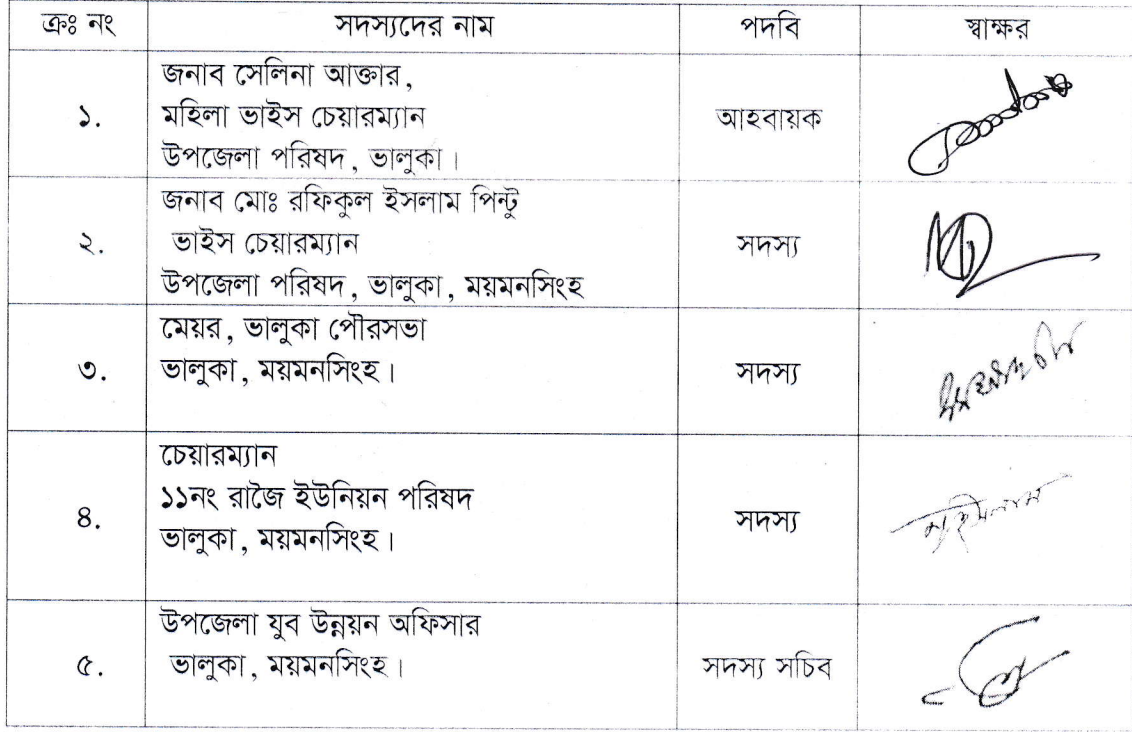 ক্রঃ নং সদস্যদের নাম পদবি স্বাক্ষর
জনাব সেলিনা আক্তার,
১. মহিলা ভাইস চেয়ারম্যান আহবায়ক
উপজেলা পরিষদ, ভালুকা।
জনাব মোঃ রফিকুল ইসলাম পিন্টু
২. ভাইস চেয়ারম্যান সদস্য
উপজেলা পরিষদ, ভালুকা, ময়মনসিংহ
মেয়র, ভালুকা পৌরসভা
৩. ভালুকা, ময়মনসিংহ। সদস্য
চেয়ারম্যান
১১নং রাজৈ ইউনিয়ন পরিষদ
৪. ভালুকা, ময়মনসিংহ। সদস্য
উপজেলা যুব উন্নয়ন অফিসার
৫. ভালুকা, ময়মনসিংহ। সদস্য সচিব